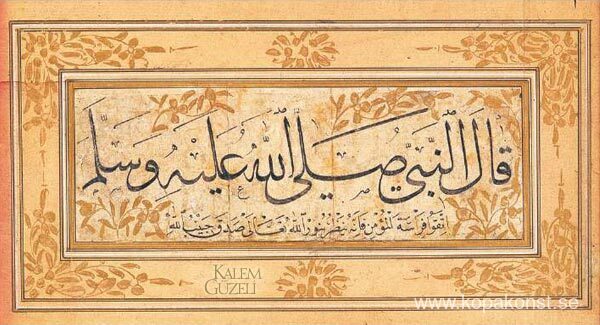 قال النبي صلى الله عليه وسلم
اتقوا فراسة المؤمن فإنه ينظر بنور الله تعالى صدق حبيب الله
KALEM
GÜZELİ
www.kopakonst.se